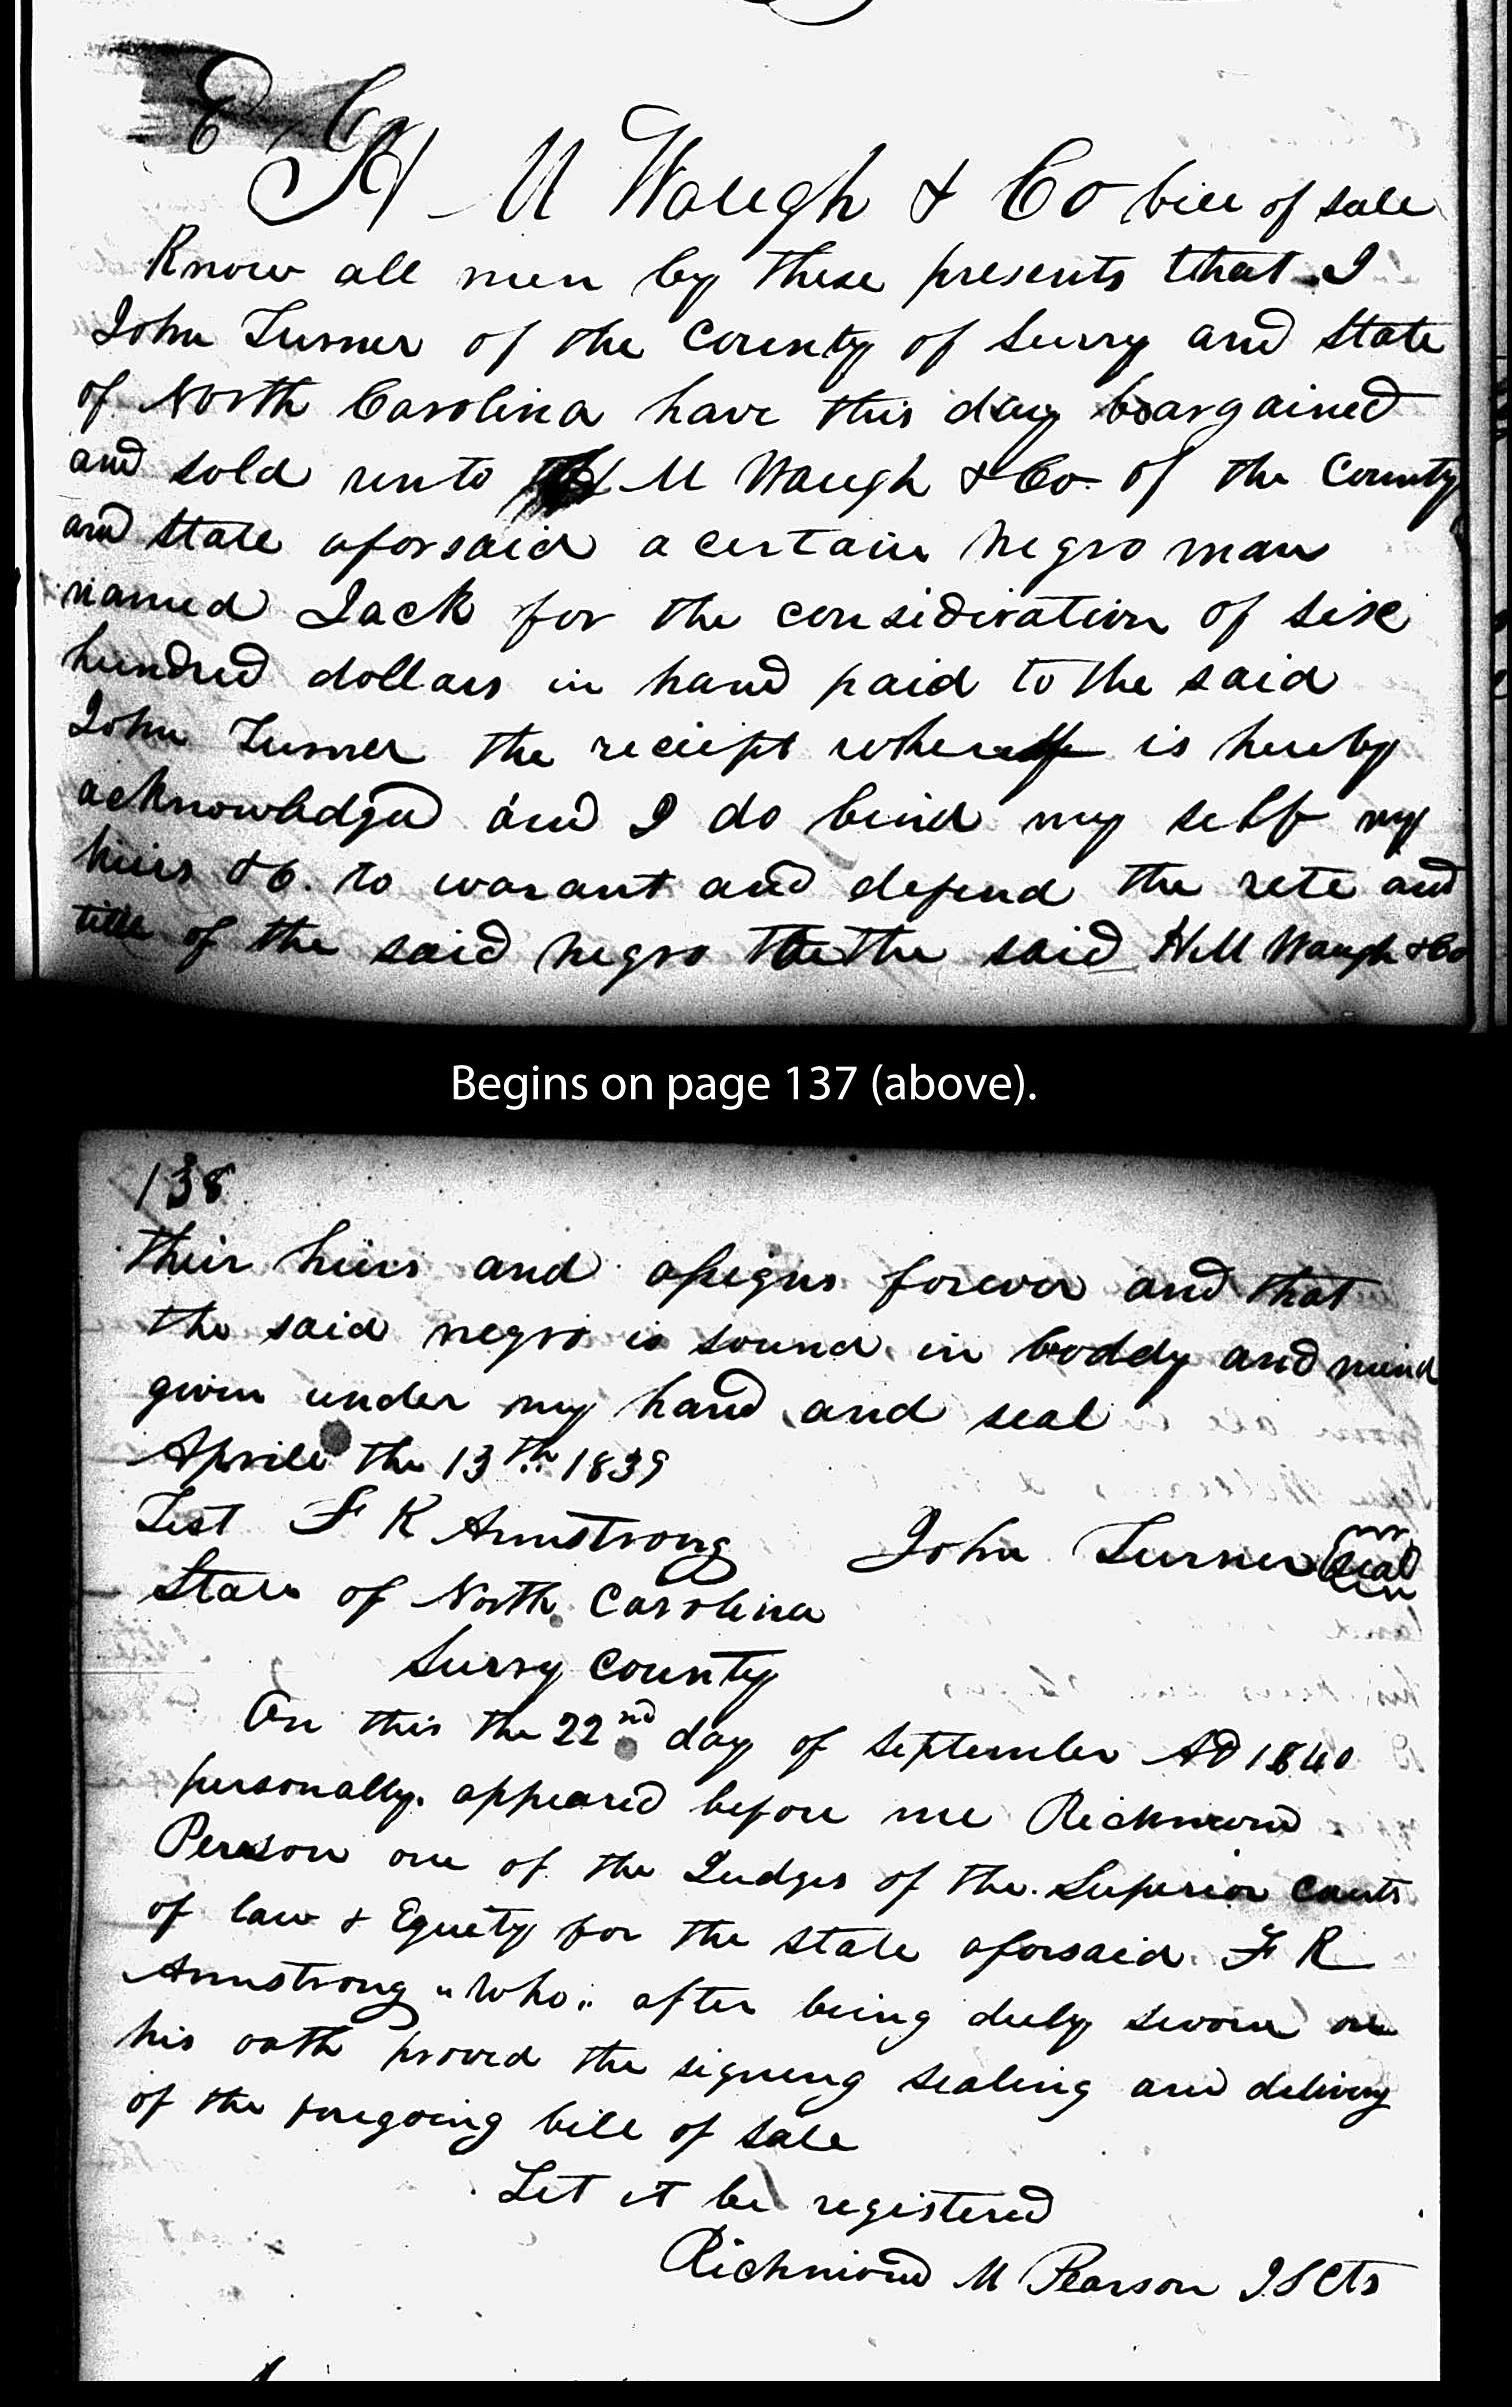 H M Waugh & Co bill of sale
Know all men by these presents that I
John Turner of the County of Surry and State
of North Carolina have this day bargained
and sold unto H M Waugh & Co. of the County
and State aforsaid a certain negro man
named Jack for the considiration of six
hundred dollars in hand paid to the said
John Turner the reciept whereof is hereby
acknowledged and I do bind my self my
heirs &c. to warant and defend the rete and
title of the said negro to the said H M Waugh & Co
Begins on page 137 (above).
138
their heirs and assigns forever and that
the said negro is sound in boddy and mind
given under my hand and seal
Aprile the 13th 1839
Test F K Armstrong John Turner Seal
State of North Carolina
Surry County
On this the 22nd day of September AD 1840
personally appeared before me Richmond
Person one of the Judges of the Superior Couts
of law & Equety for the State aforsaid F R
Armstrong "who" after being duly sworn on
his oath proved the signing sealing and delivery
of the foregoing bill of sale
Let it be registered
Richmond M Pearson J S Cts